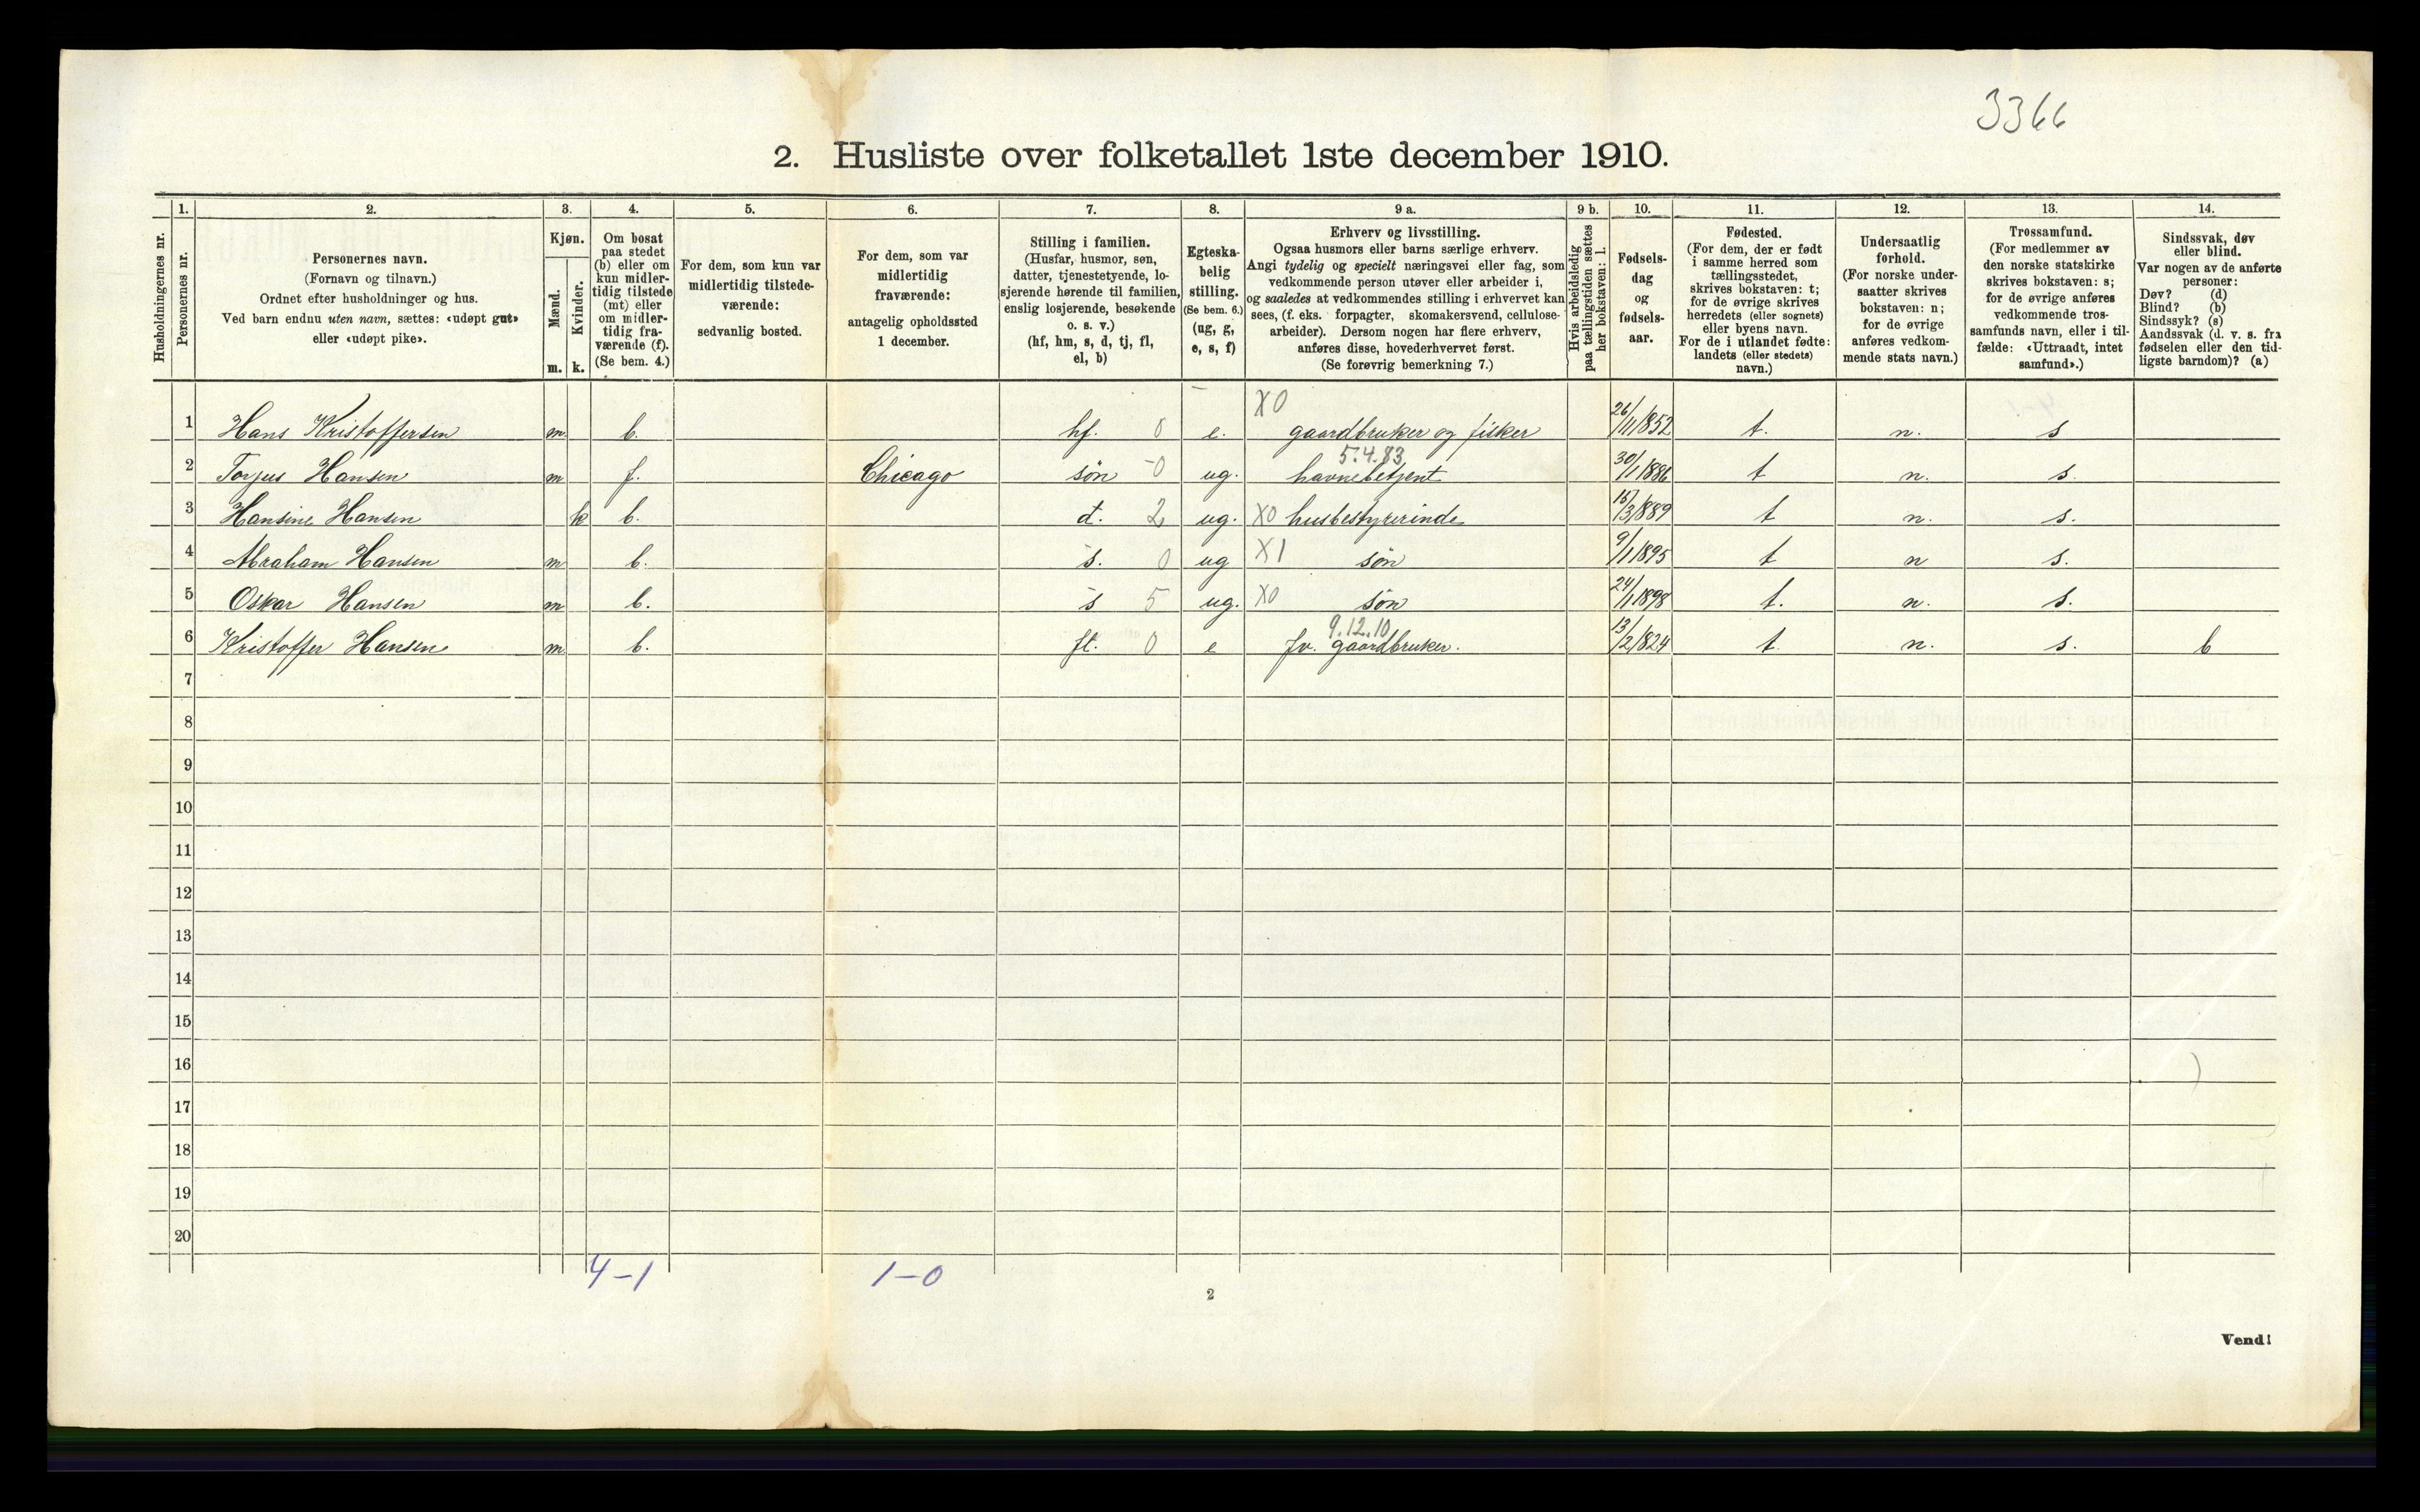 3366
2. Husliste over folketallet 1ste december 1910.
Husholdningernes nr.
1.
Personernes nr.
2.
Personernes navn.
(Fornavn og tilnavn.)
Ordnet efter husholdninger og hus.
Ved barn endnu uten navn, sættes: «udøpt gut»
eller «udøpt pike».
3.
Kjøn.
Mænd.
Kvinder.
m. k.
4.
Om bosat
paa stedet
(b) eller om
kun midler-
tidig tilstede
(mt) eller
om midler-
tidig fra-
værende (f).
(Se bem. 4.)
5.
For dem, som kun var
midlertidig tilstede-
værende:
sedvanlig bosted.
6.
For dem, som var
midlertidig
fraværende:
antagelig opholdssted
1 december.
7.
Stilling i familien.
(Husfar, husmor, søn,
datter, tjenestetyende, lo-
sjerende hørende til familien,
enslig losjerende, besøkende
o. s. v.)
(hf, hm, s, d, tj, fl,
el, b)
8.
Egteska-
belig
stilling.
(Se bem. 6.)
(ug, g,
e, s, f)
9 a.
Erhverv og livsstilling.
Ogsaa husmors eller barns særlige erhverv.
Angi tydelig og specielt næringsvei eller fag, som
vedkommende person utøver eller arbeider i,
og saaledes at vedkommendes stilling i erhvervet kan
sees, (f. eks. forpagter, skomakersvend, cellulose-
arbeider). Dersom nogen har flere erhverv,
anføres disse, hovederhvervet først.
(Se forøvrig bemerkning 7.)
9 b.
Hvis arbeidsledig
paa tællingstiden sættes
her bokstaven: l.
10.
Fødsels-
dag
og
fødsels-
aar.
11.
Fødested.
(For dem, der er født
i samme herred som
tællingsstedet,
skrives bokstaven: t;
for de øvrige skrives
herredets (eller sognets)
eller byens navn.
For de i utlandet fødte:
landets (eller stedets)
navn.)
12.
Undersaatlig
forhold.
(For norske under-
saatter skrives
bokstaven: n;
for de øvrige
anføres vedkom-
mende stats navn.)
13.
Trossamfund.
(For medlemmer av
den norske statskirke
skrives bokstaven: s;
for de øvrige anføres
vedkommende tros-
samfunds navn, eller i til-
fælde: «Uttraadt, intet
samfund».)
14.
Sindssvak, døv
eller blind.
Var nogen av de anførte
personer:
Døv? (d)
Blind? (b)
Sindssyk? (s)
Aandssvak (d. v. s. fra
fødselen eller den tid-
ligste barndom)? (a)
X0
1 Hans Kristoffersen m. b. hf. 0 e. gaardbruker og fisker 26/11 1852 t. n. s
5.4.83
2 Torjus Hansen m f. Chicago søn -0 ug. havnebetjent 30/1 1886 t n. s.
3 Hansine Hansen k b. d. 2 ug. X0 husbestyrerinde 15/3 1889 t n. s.
4 Abraham Hansen m b. s. 0 ug X1 søn 9/1 1895 t n s.
5 Oskar Hansen m b. s 5 ug. X0 søn 24/1 1898 t. n. s.
9.12.10
6 Kristoffer Hansen m b. fl. 0 e fv. gaardbruker. 13/2 1824 t. n. s. b
7
8
9
10
11
12
13
14
15
16
17
18
19
20
4-1 1-0
2
Vend!